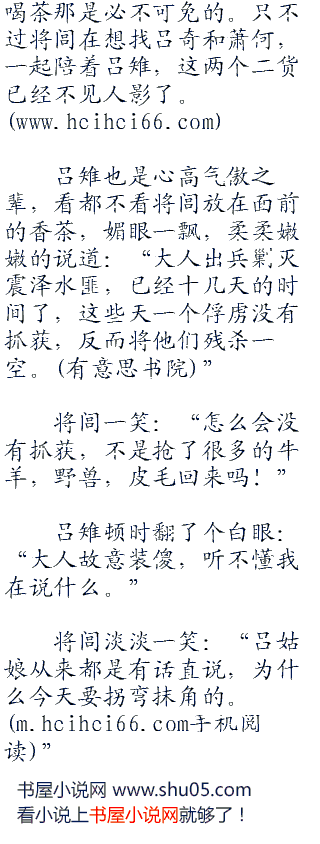 喝茶那是必不可免的。只不
过将闾在想找吕奇和萧何，
一起陪着吕雉，这两个二货
已经不见人影了。
(www.hcihci66.com)
吕雉也是心高气傲之
辈，看都不看将闾放在面前
的香茶，媚眼一飘，柔柔嫩
嫩的说道：“大人出兵剿灭
震泽水匪，已经十几天的时
间了，这些天一个俘虏没有
抓获，反而将他们残杀一
空。(有意思书院)”
将闾一笑：“怎么会没
有抓获，不是抢了很多的牛
羊，野兽，皮毛回来吗！”
吕雉顿时翻了个白眼：
“大人故意装傻，听不懂我
在说什么。”
将闾淡淡一笑：“吕姑
娘从来都是有话直说，为什
么今天要拐弯抹角的。
(m.hcihci66.com手机阅
读)”
书屋小说网 www.shu05.com
看小说上书屋小说网就够了！